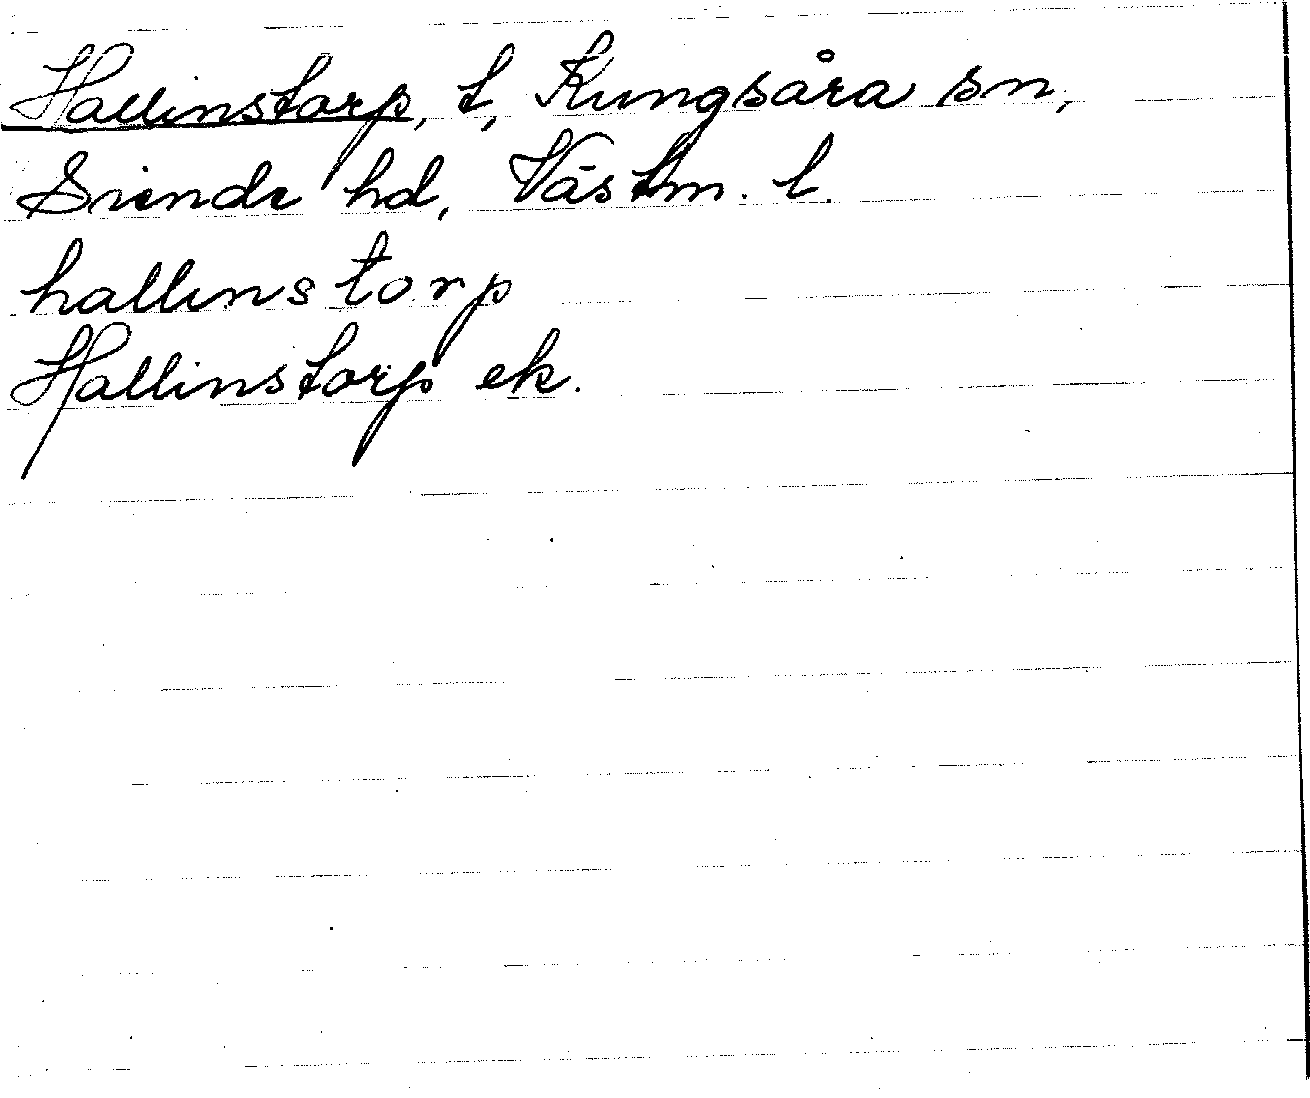 Hallinstorp, t, Kungsåra sn,
Siende hd, Västm. l.
hallinstorp
Hallinstorp ek.